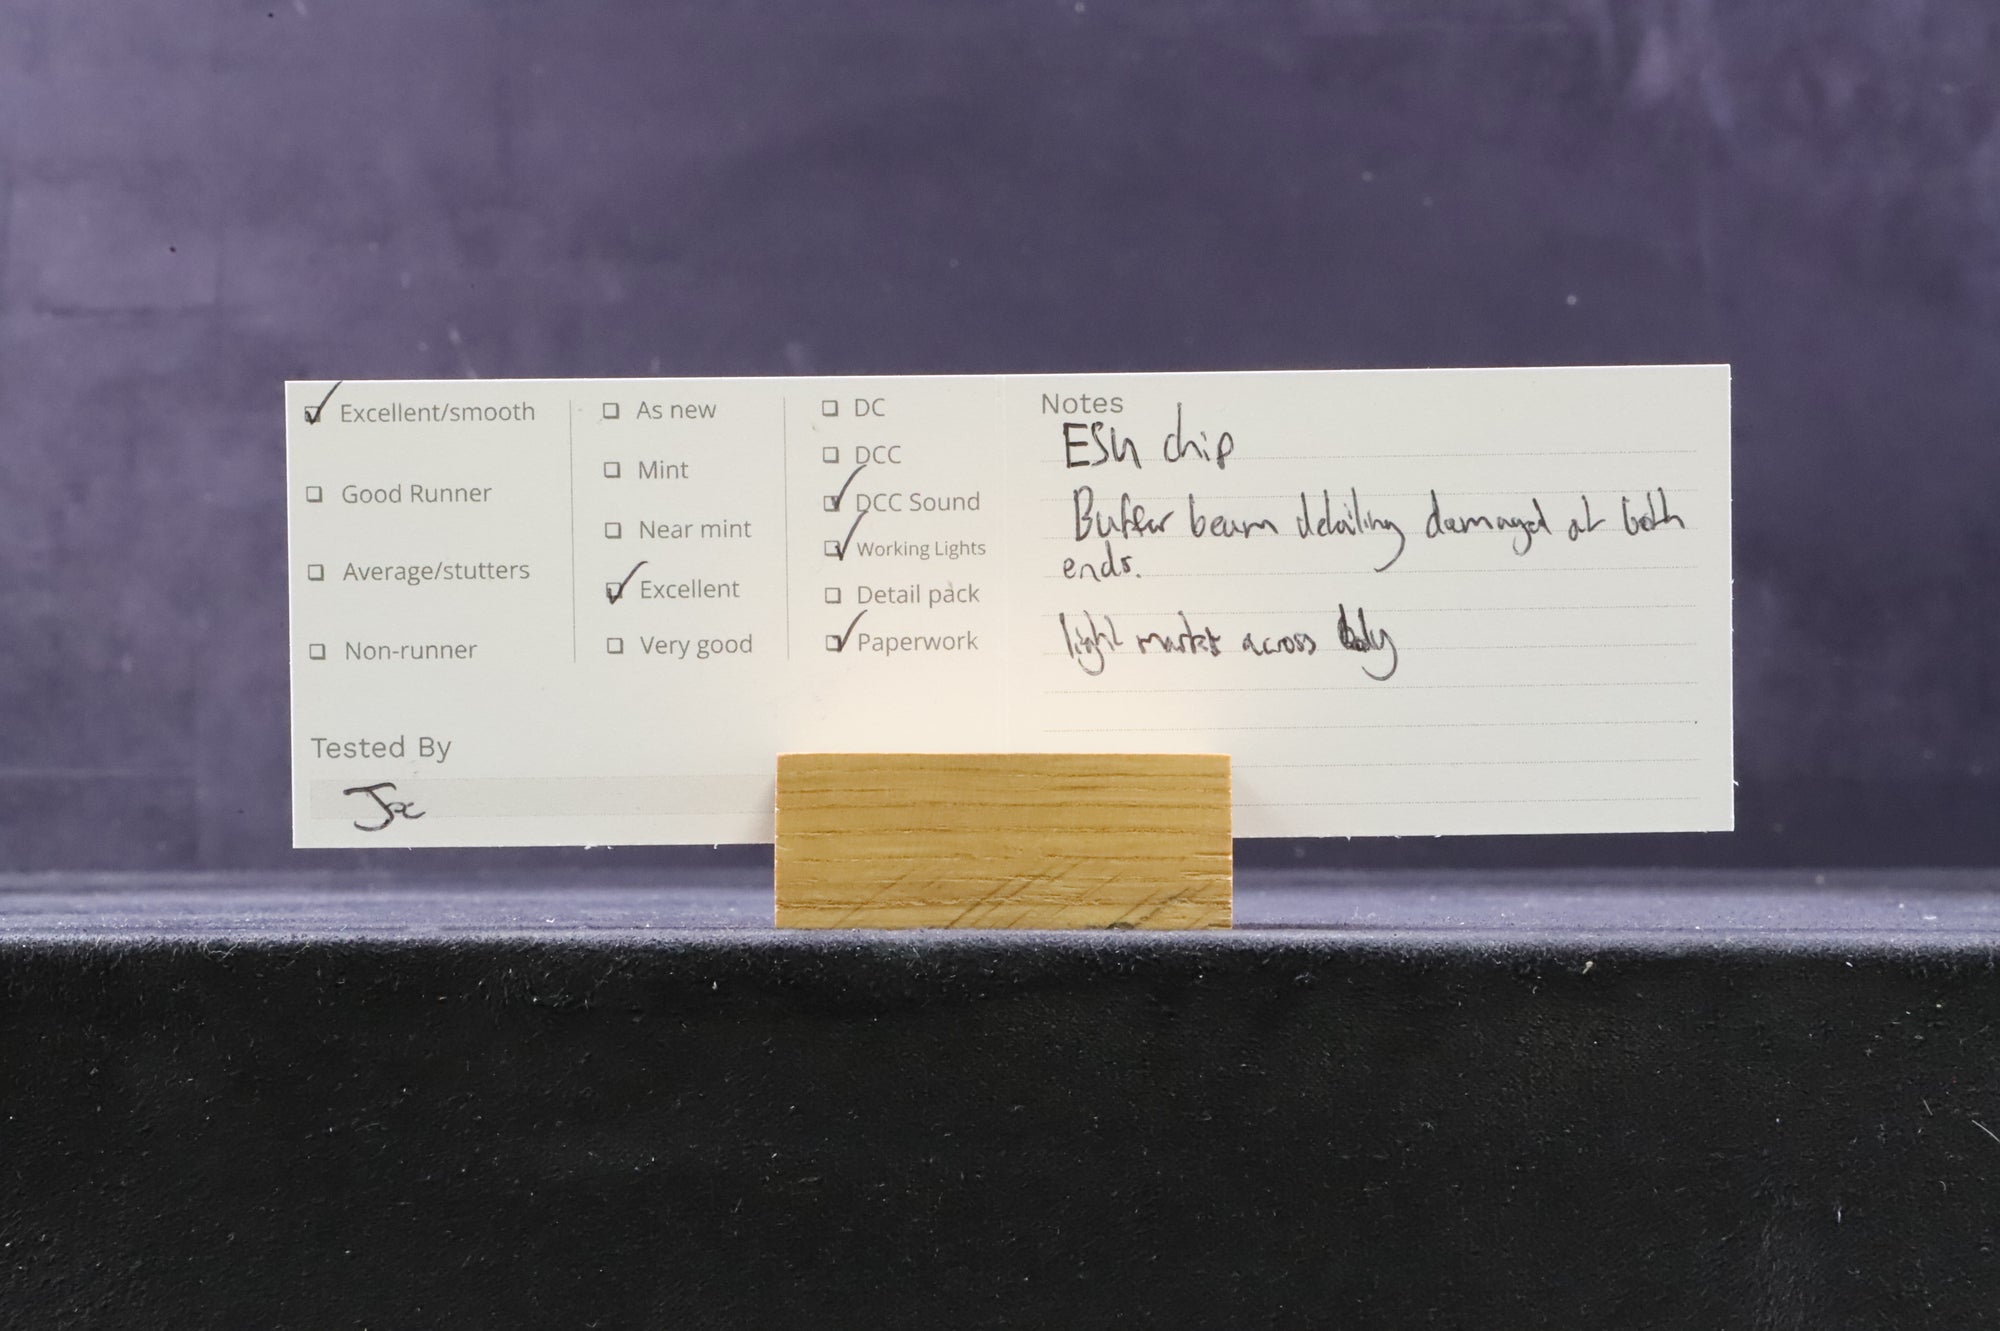 Excellent/smooth
Good Runner
Average/stutters
Non-runner
As new
Mint
Near mint
Excellent
Very good
DC
DCC
DCC Sound
Working Lights
Detail pack
Paperwork
Tested By
Joe
Notes
ESU chip
Buffer beam detailing damaged at both
ends.
light marks across body